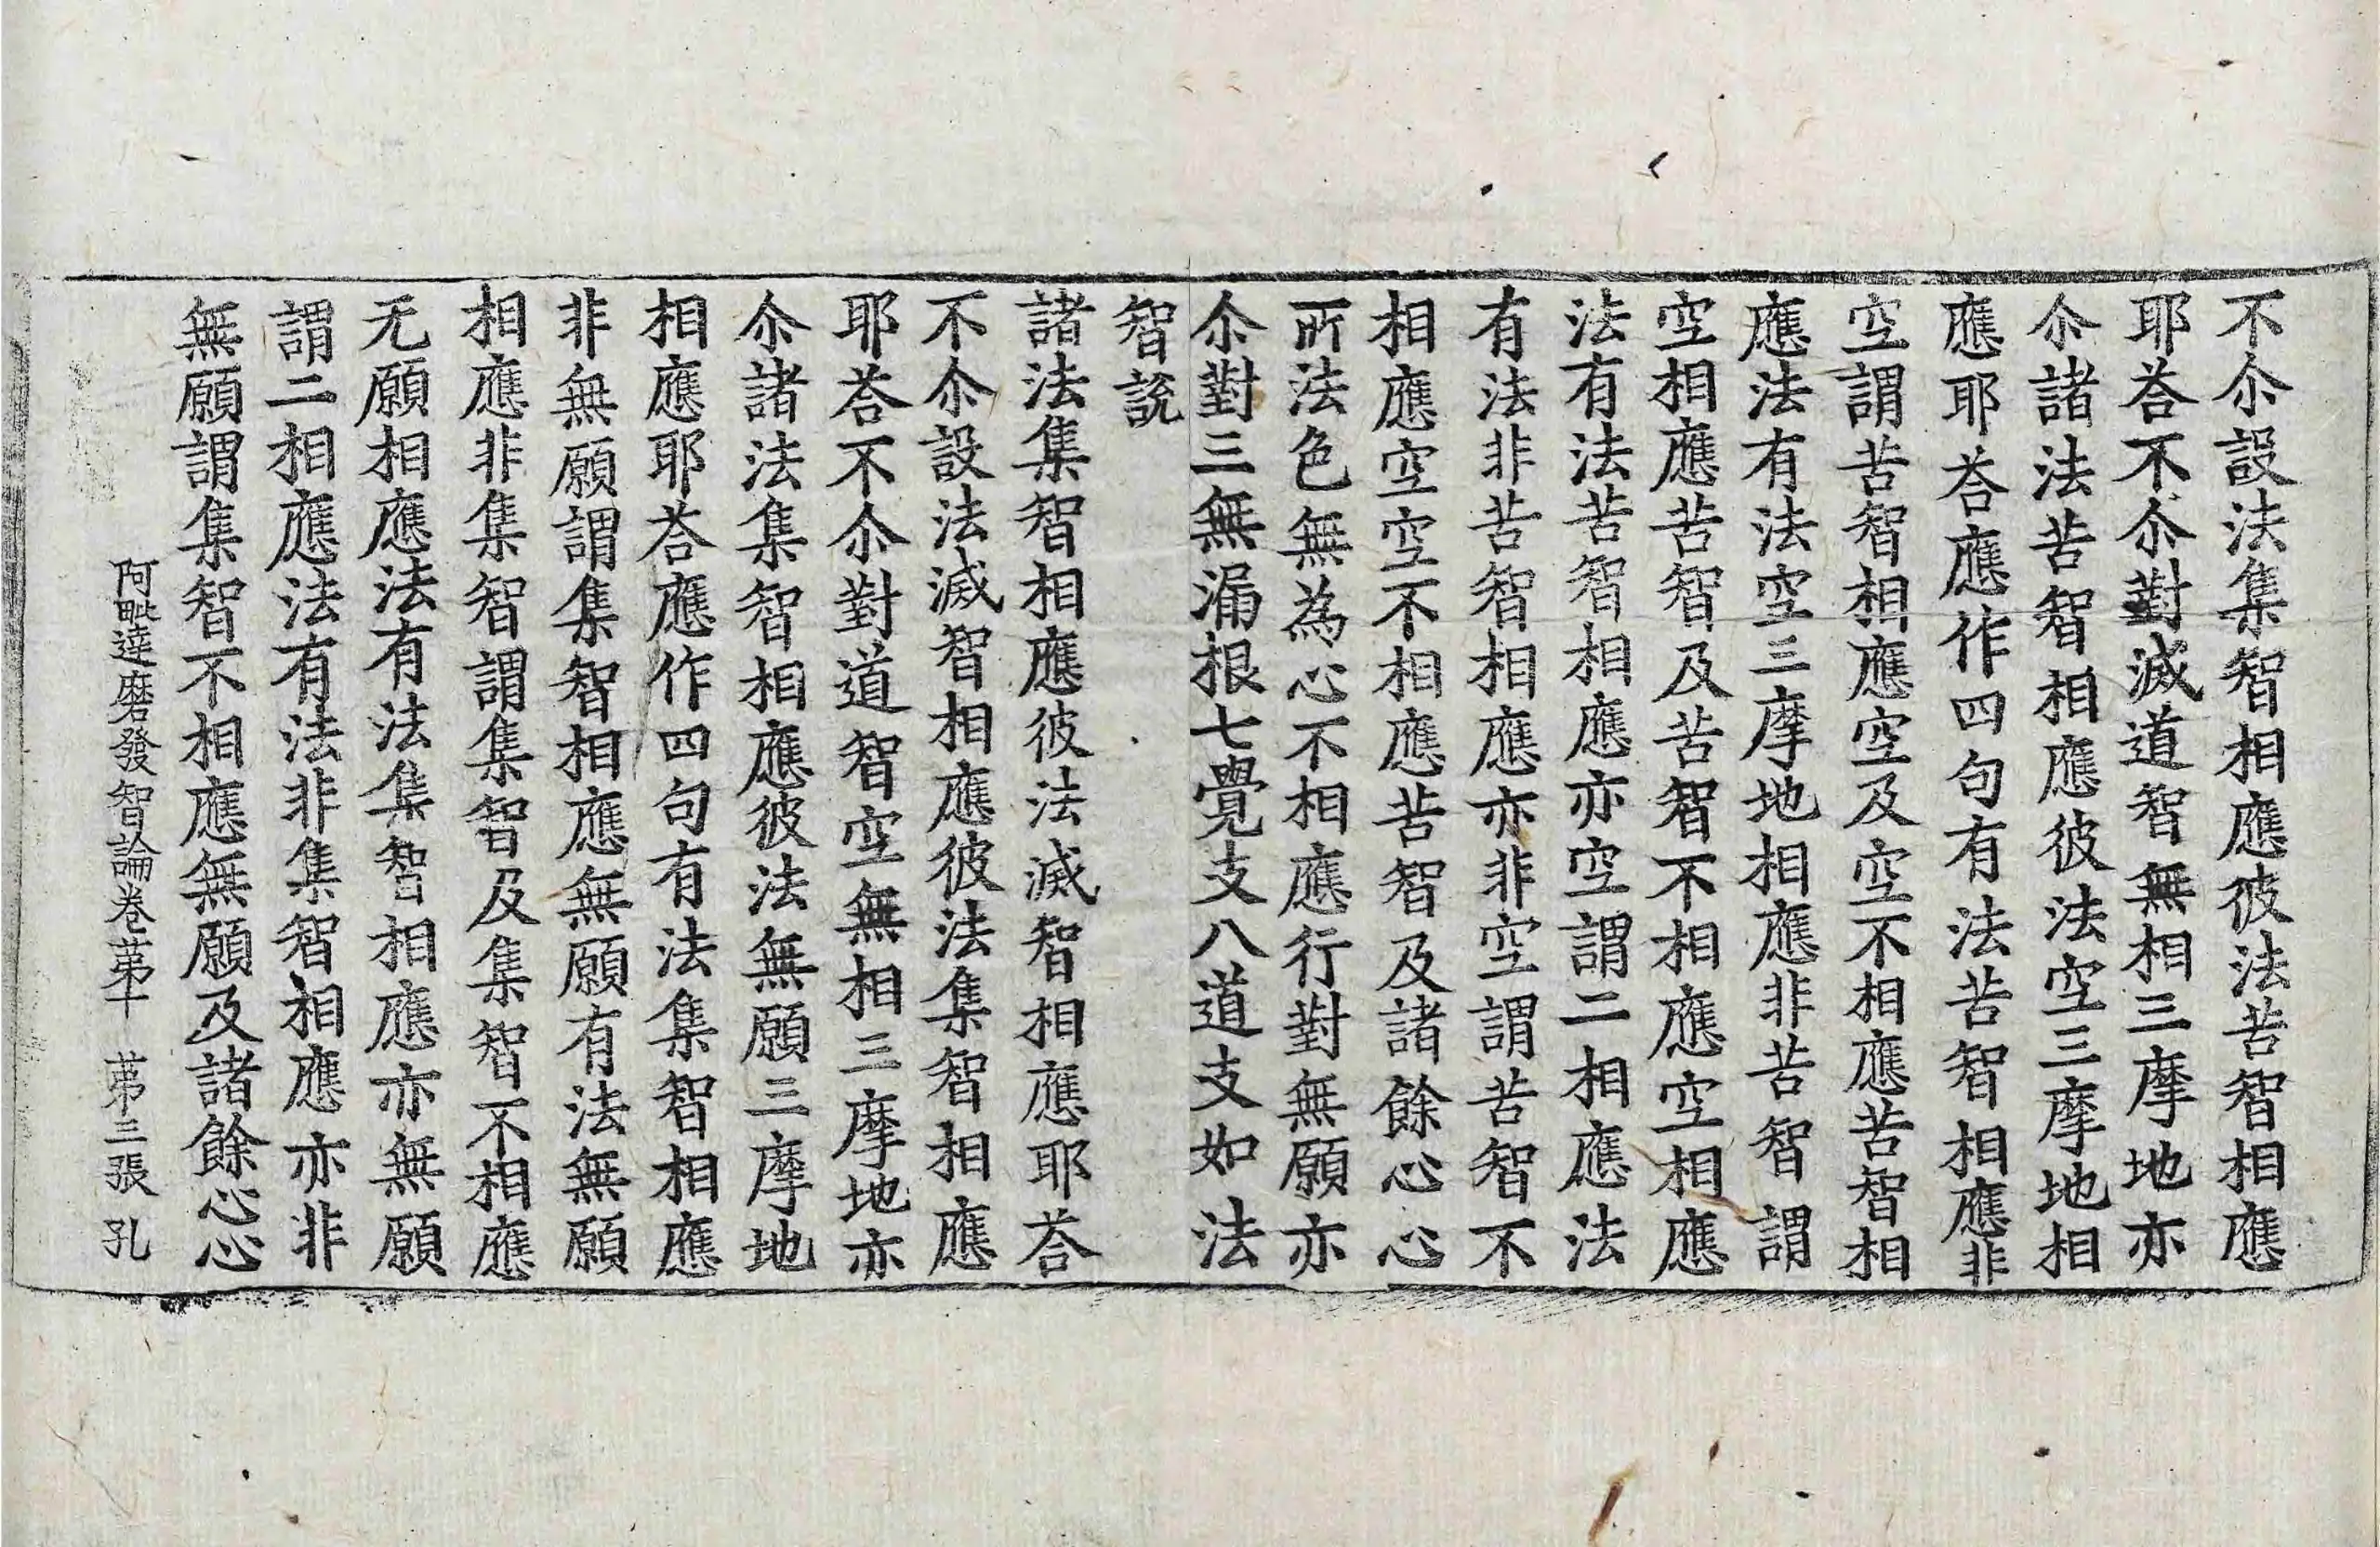 不尒設法集智相應彼法苦智相應
耶荅不尒對滅道智無相三摩地亦
尒諸法苦智相應彼法空三摩地相
應耶荅應作四句有法苦智相應非
空謂苦智相應空及空不相應苦智相
應法有法空三摩地相應非苦智謂
空相應苦智及苦智不相應空相應
法有法苦智相應亦空謂二相應法
有法非苦智相應亦非空謂苦智不
相應空空不相應苦智及諸餘心心
所法色無為心不相應行對無願亦
尒對三無漏根七覺支八道支如法
智說
諸法集智相應彼法滅智相應耶荅
不尒設法滅智相應彼法集智相應
耶荅不尒對道智空無相三摩地亦
尒諸法集智相應彼法無願三摩地
相應耶荅應作四句有法集智相應
非無願謂集智相應無願有法無願
相應非集智謂集智及集智不相應
无願相應法有法集智相應亦無願
謂二相應法有法非集智相應亦非
無願謂集智不相應無願及諸餘心心
阿毗達磨發智論卷苐十　苐三張　孔